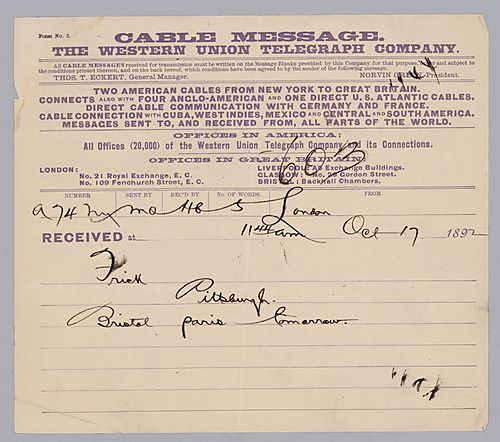 Form No. 5.
CABLE MESSAGE.
THE WESTERN UNION TELEGRAPH COMPANY.
All CABLE MESSAGES received for transmission must be written on the Message Blanks provided by this Company for that purpose, and subject to
the conditions printed thereon, and on the back hereof, which conditions have been agreed to by the sender of the following message.
THOS. T. ECKERT, General Manager. NORVIN GREEN, President.
1144
TWO AMERICAN CABLES FROM NEW YORK TO GREAT BRITAIN.
CONNECTS ALSO WITH FOUR ANGLO-AMERICAN AND ONE DIRECT U.S. ATLANTIC CABLES.
DIRECT CABLE COMMUNICATION WITH GERMANY AND FRANCE.
CABLE CONNECTION WITH CUBA, WEST INDIES, MEXICO AND CENTRAL AND SOUTH AMERICA.
MESSAGES SENT TO, AND RECEIVED FROM, ALL PARTS OF THE WORLD.
OFFICES IN AMERICA:
All Offices (20,000) of the Western Union Telegraph Company and its Connections.
OFFICES IN GREAT BRITAIN:
LONDON: LIVERPOOL: A8 Exchange Buildings.
No. 21 Royal Exchange, E. C. GLASGOW: No. 29 Gordon Street.
No. 109 Fenchurch Street, E. C. BRISTOL: Backhall Chambers.
NUMBER SENT BY REC'D BY No. OF WORDS. FROM
a 74 Ny Mo HB 5 London
RECEIVED at 1144 am Oct 17 1892
Frick
Pittsburgh.
Bristol paris tomorrow.